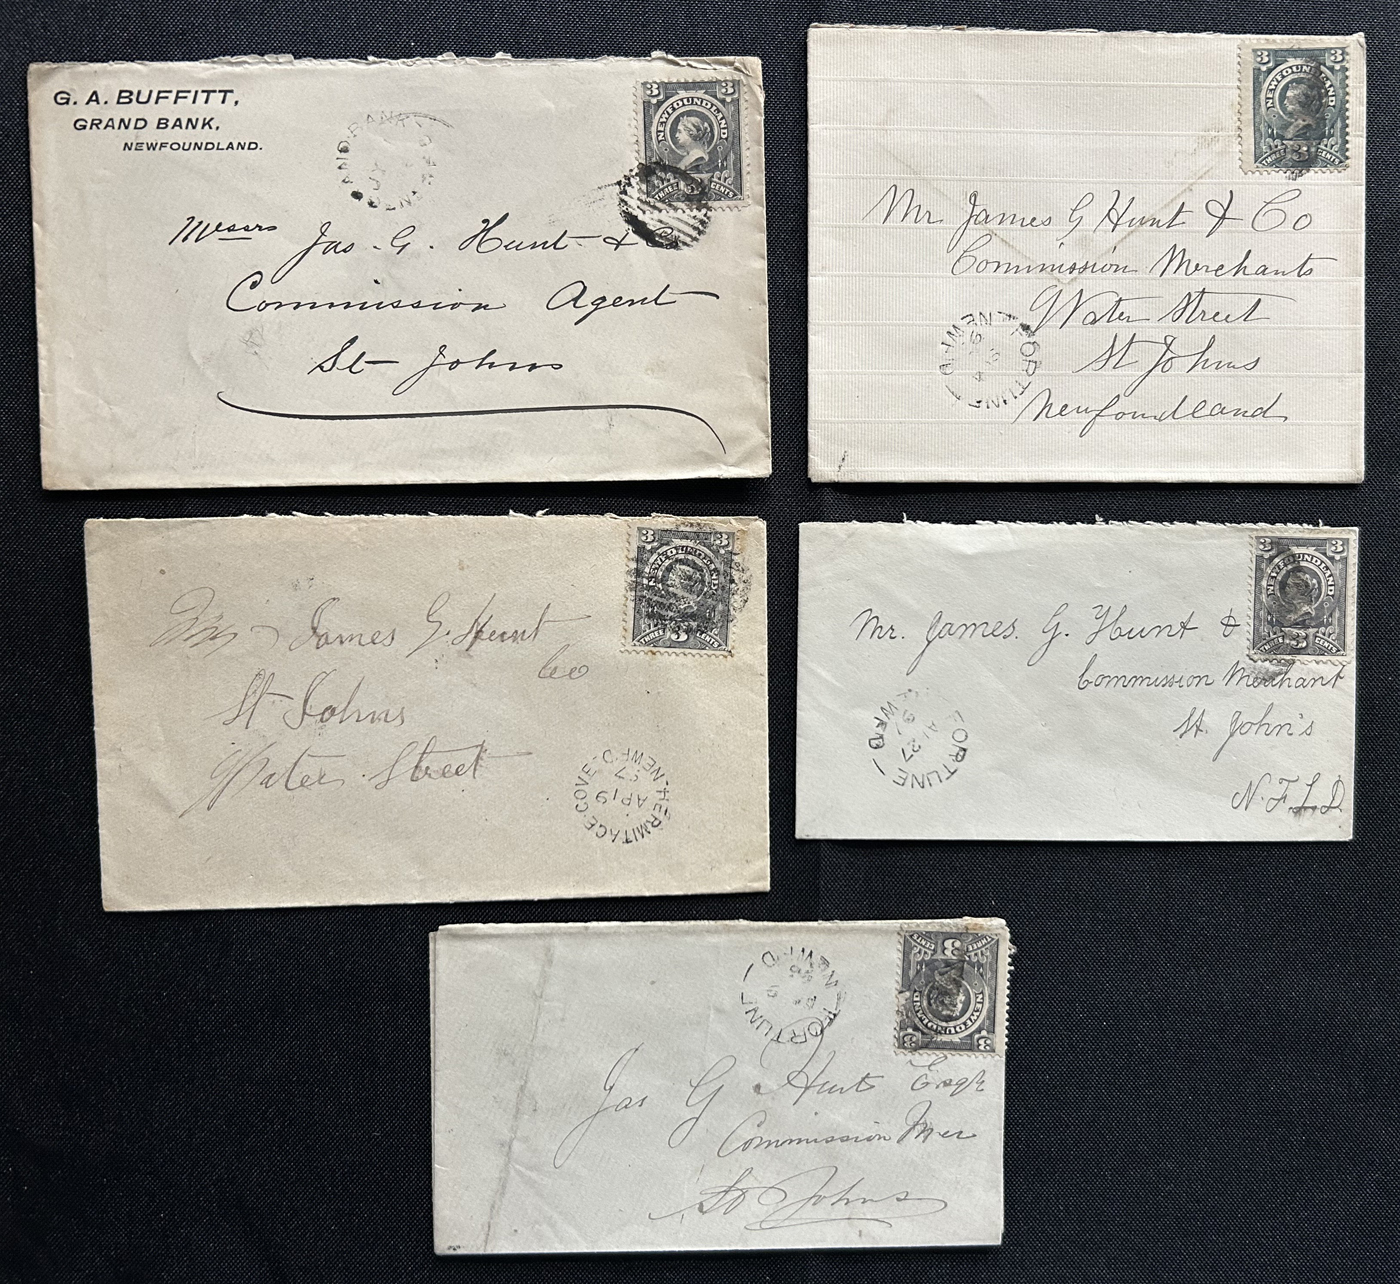 G. A. BUFFITT,
GRAND BANK,
NEWFOUNDLAND.
GRAND BANK
NEWFD
3 3
NEWFOUNDLAND
THREE 3 CENTS
Messrs Jas. G. Hunt & Co
Commission Agent
St Johns
3 3
NEWFOUNDLAND
THREE 3 CENTS
Mr James G Hunt & Co
Commission Merchants
Water Street
St Johns
Newfoundland
FORTUNE
NEWFD
3 3
NEWFOUNDLAND
THREE 3 CENTS
James G. Hunt
Co
St Johns
Water Street
HERMITAGE-COVE
NEWFD
AP 19
97
3 3
NEWFOUNDLAND
3
Mr. James. G. Hunt &
Commission Merchant
St. John's
N. F. L. D.
FORTUNE
NEWFD
AP 27
97
3 3
NEWFOUNDLAND
THREE 3 CENTS
FORTUNE
NEWFD
Jas G Hunt Esqr
Commission Mer
St Johns